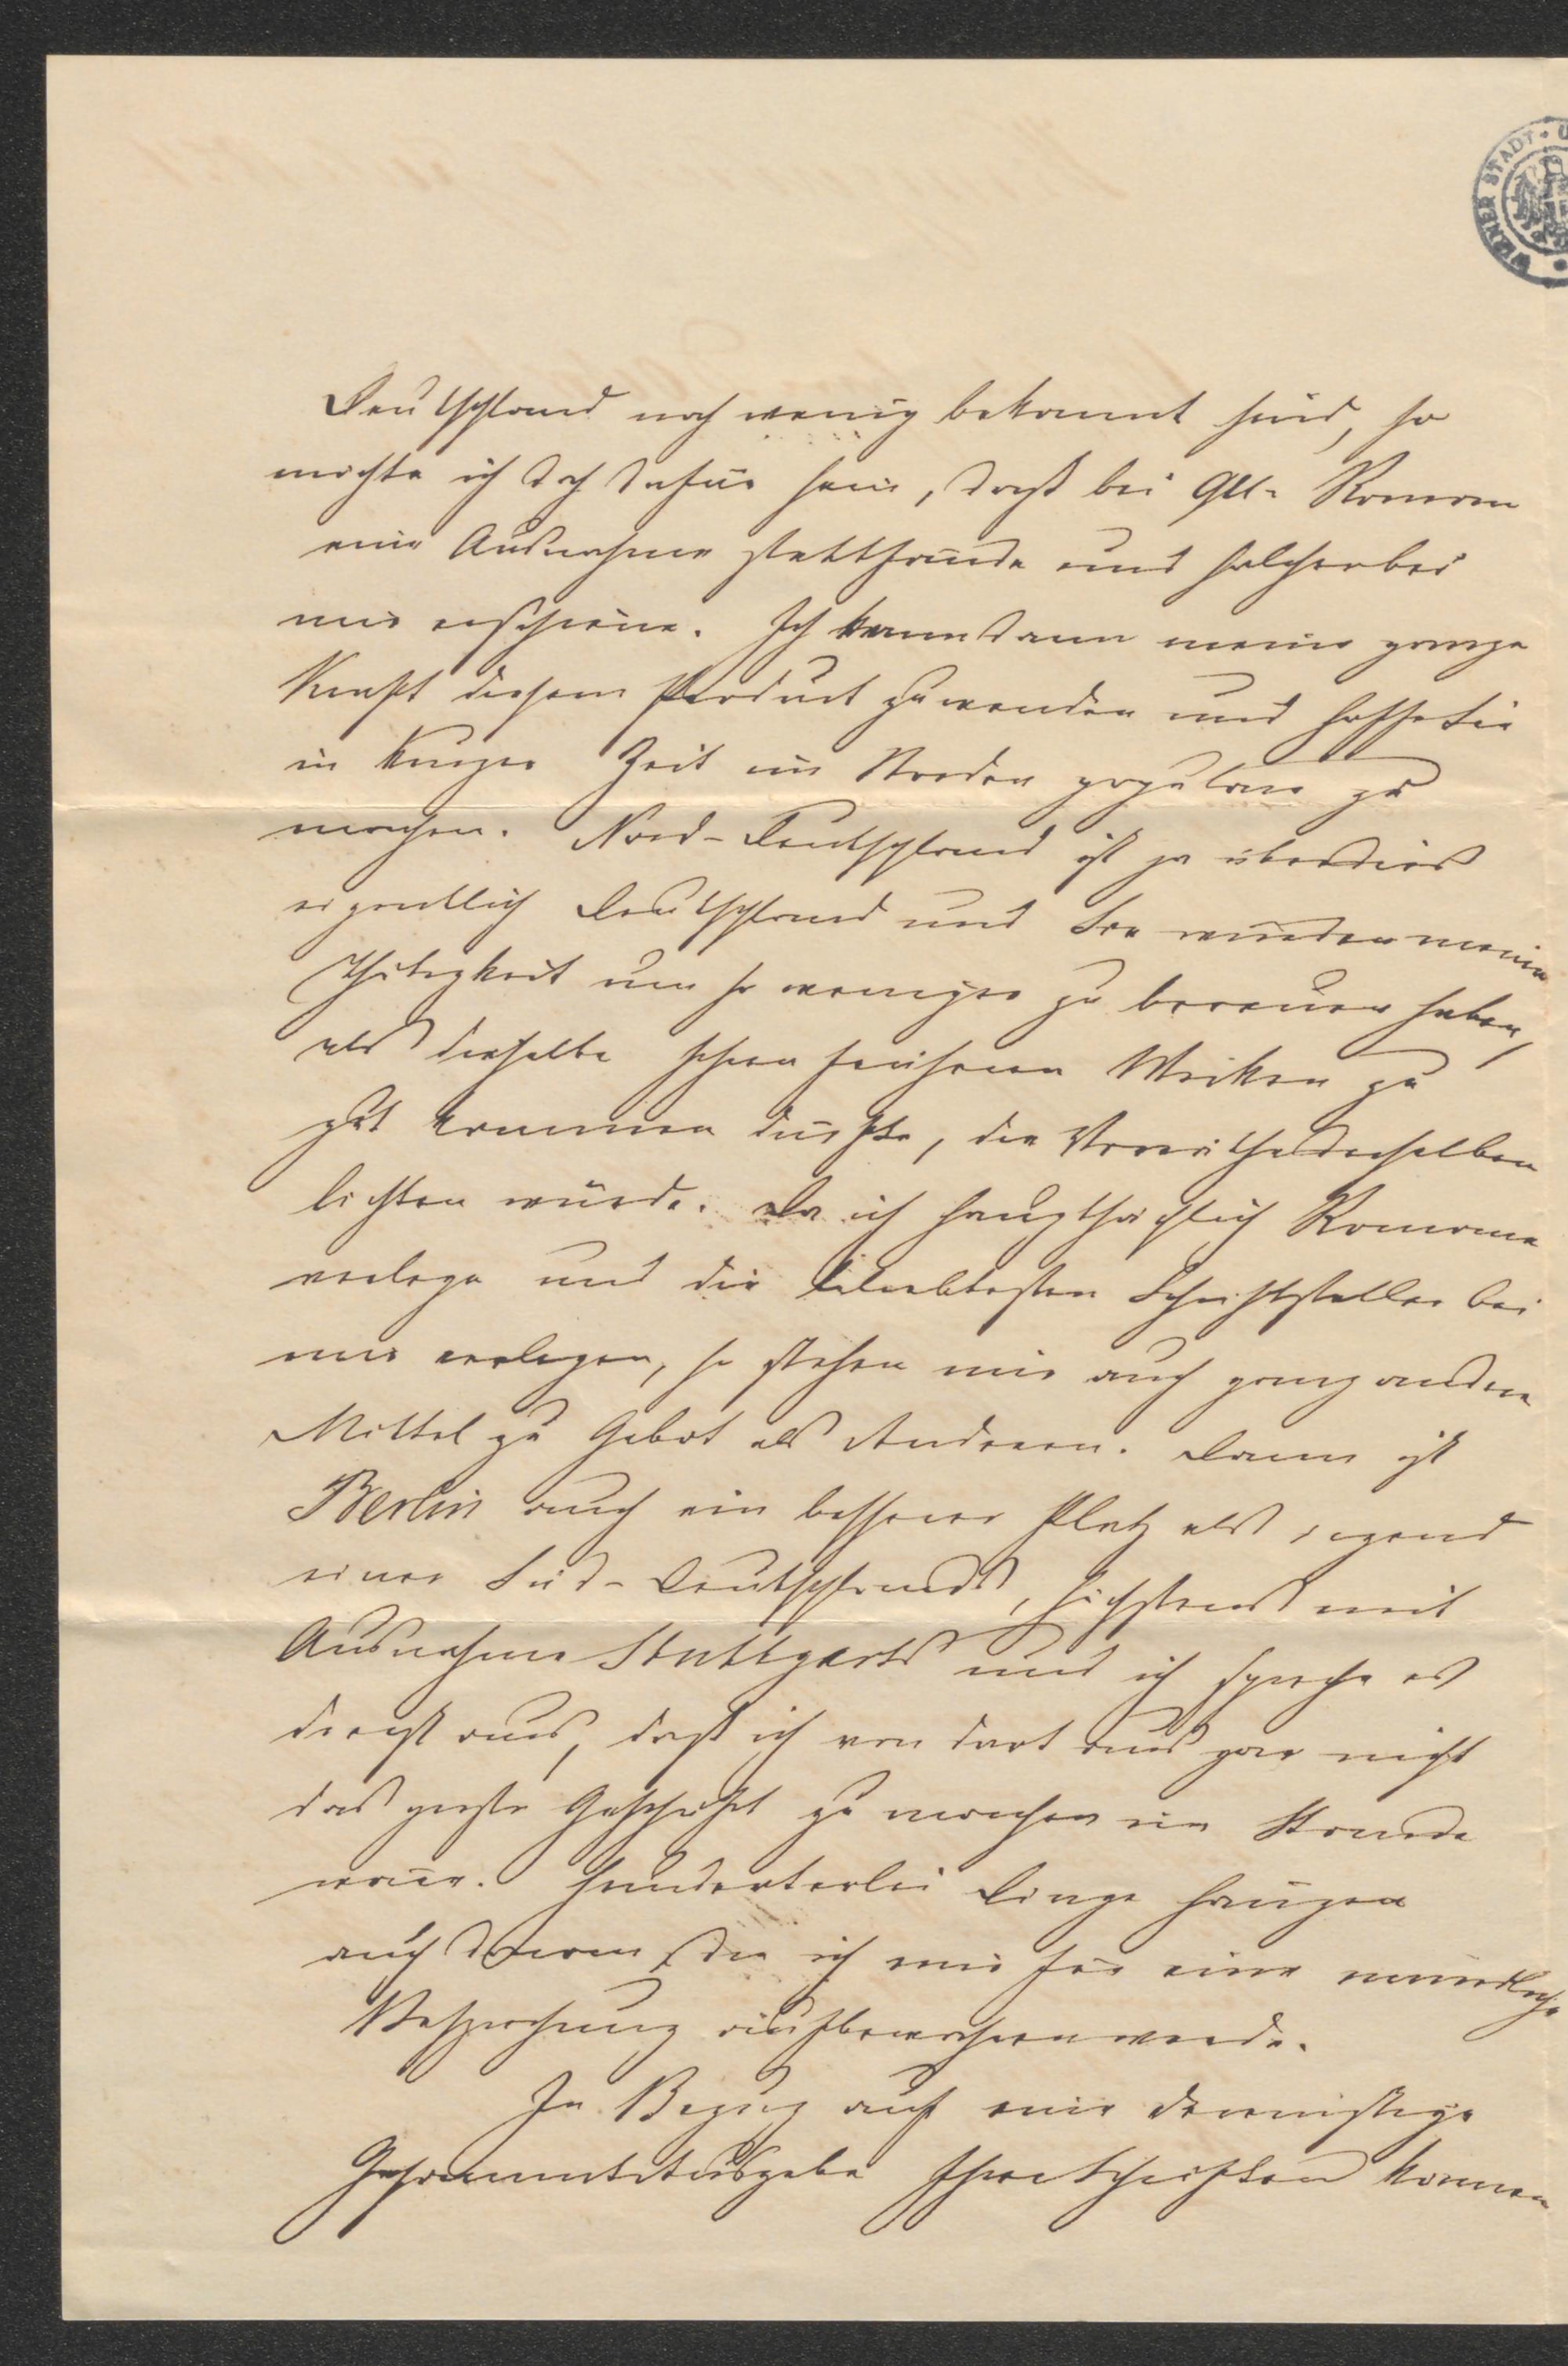 WIENER STADT
Deutschland noch wenig bekannt sind, so
möchte ich doch dafür sein, daß bei Roman
eine Ausnahme stattfände und solcher bei
mir erschiene. Ich kann dann meine ganze
Kraft diesem Product zuwenden und hoffe Sie
in kurzer Zeit im Norden populär zu
machen. Nord-Deutschland ist ja überdies
eigentlich Deutschland und Sie würden meine
Thätigkeit um so weniger zu bereuen haben,
als dieselbe schon früheren Werken zu
gut kommen dürfte, die Vorräthe derselben
lichten würde. Da ich hauptsächlich Romane
verlege und die beliebtesten Schriftsteller bei
mir verlegen, so stehen mir auch ganz andere
Mittel zu Gebot als Anderen. Dann ist
Berlin auch ein besserer Platz als irgend
einer Süd-Deutschlands, höchstens mit
Ausnahme Stuttgarts und ich spreche es
dreist aus, daß ich von dort aus gar nicht
das große Geschäft zu machen im Stande
wäre. Hunderterlei Dinge hängen
auch davon, die ich mir für eine mündliche
Besprechung aufbewahren werde.
In Bezug auf eine dereinstige
Gesammtausgabe Ihrer Schriften können